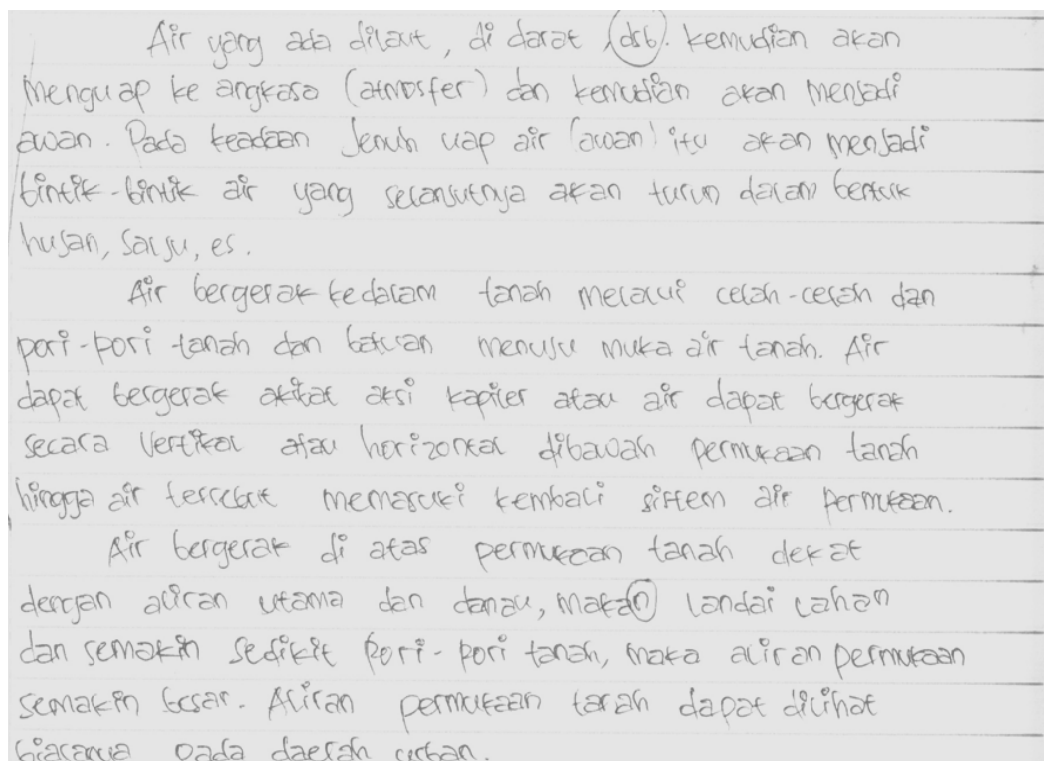 Air yang ada dilaut, di darat, dsb. kemudian akan
menguap ke angkasa (atmosfer) dan kemudian akan menjadi
awan. Pada keadaan jenuh uap air (awan) itu akan menjadi
bintik-bintik air yang selanjutnya akan turun dalam bentuk
hujan, salju, es.
Air bergerak kedalam tanah melalui celah-celah dan
pori-pori tanah dan batuan menuju muka air tanah. Air
dapat bergerak akibat aksi kapiler atau air dapat bergerak
secara vertikal atau horizontal dibawah permukaan tanah
hingga air tersebut memasuki kembali sistem air permukaan.
Air bergerak di atas permukaan tanah dekat
dengan aliran utama dan danau, makan landai lahan
dan semakin sedikit pori-pori tanah, maka aliran permukaan
semakin besar. Aliran permukaan tanah dapat dilihat
biasanya pada daerah urban.